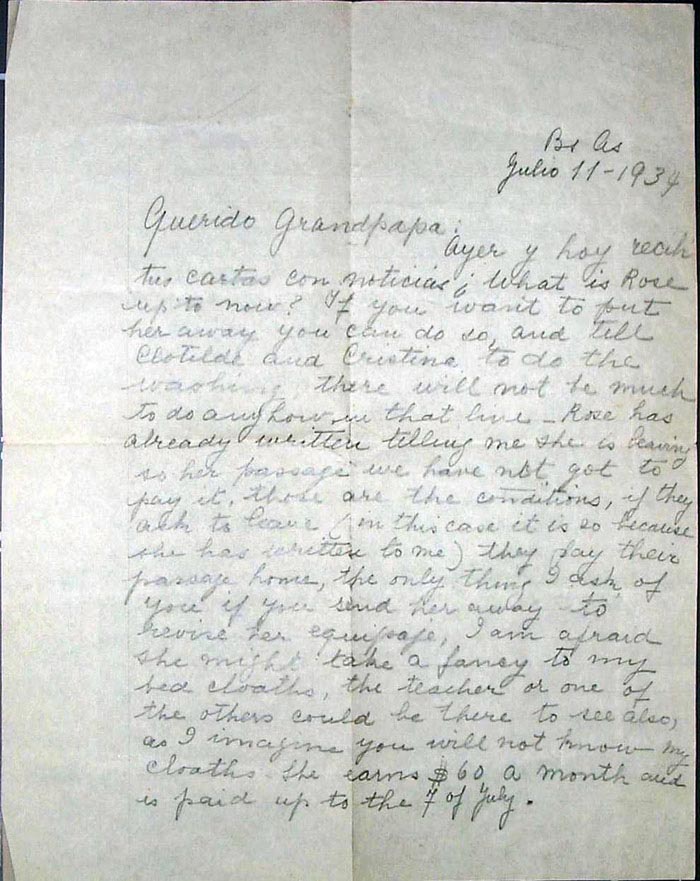 Bs As
Julio 11-1934
Querido Grandpapa:
Ayer y hoy recibi
tus cartas con noticias; What is Rose
up to now? If you want to put
her away you can do so, and tell
Clotilde and Cristina to do the
washing, there will not be much
to do anyhow in that line - Rose has
already written telling me she is leaving
so her passage we have not got to
pay it, those are the conditions, if they
ask to leave (in this case it is so because
she has written to me) they pay their
passage home, the only thing I ask of
you if you send her away to
revise her equipaje, I am afraid
she might take a fancy to my
bed cloaths, the teacher or one of
the others could be there to see also,
as I imagine you will not know my
cloaths. She earns $60 a month and
is paid up to the 7 of July.